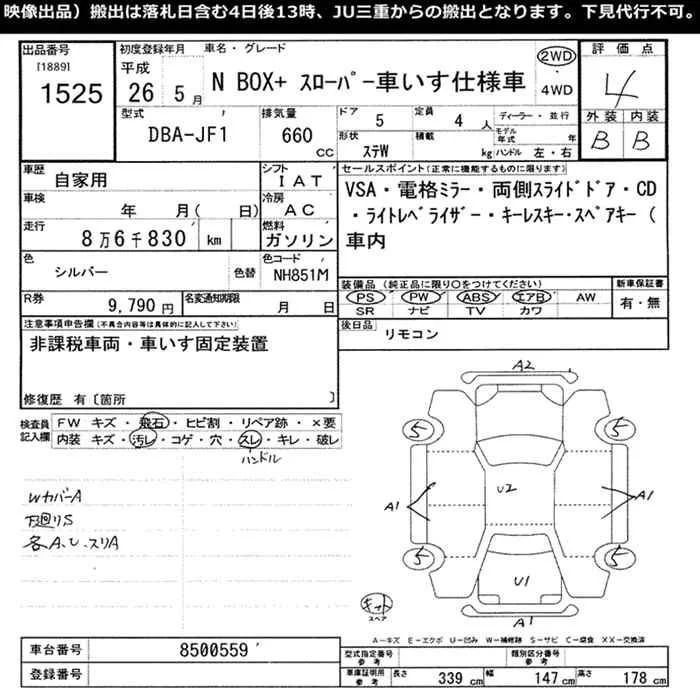 映像出品）搬出は落札日含む4日後13時、JU三重からの搬出となります。下見代行不可。
出品番号 初度登録年月 車名・グレード 評価点
[1889] 平成 2WD
1525 26 5月 N BOX+ スローパー車いす仕様車 4WD 4
型式 排気量 ドア 5 定員 4人 ディーラー・並行 外装 内装
DBA-JF1 660 CC 形状 ステW 積載 kg モデル年式 年 ハンドル 左・右 B B
車歴 自家用 シフト IAT セールスポイント(正常に機能するものに限ります)
車検 年 月( 日) 冷房 AC VSA・電格ミラー・両側スライドドア・CD
走行 8万6千830 km 燃料 ガソリン ・ライトレベライザー・キーレスキー・スペアキー(
車内
色 シルバー 色替 色コード NH851M 装備品 (純正品に限り○をつけてください) 新車保証書
R券 9,790円 名変通知期限 月 日 PS・PW・ABS・エアB・AW 有・無
SR ナビ TV カワ
注意事項申告欄(不具合内容等は具体的に記入して下さい) 後日品 リモコン
非課税車両・車いす固定装置
修復歴 有〔箇所 〕
検査員記入欄 FW キズ・飛石・ヒビ割・リペア跡・×要
内装 キズ・汚レ・コゲ・穴・スレ・キレ・破レ
ハンドル
WカバーA
下廻りS
各A、U、スリA
A2
5 5
A1 U2 A1
5 5
U1
キット スペア
A1
A－キズ E－エクボ U－凹み W－補修跡 S－サビ C－腐食 XX－交換済
車台番号 8500559
型式指定番号 参考 類別区分番号 参考
登録番号 車庫証明用 参考 長さ 339 cm 幅 147 cm 高さ 178 cm